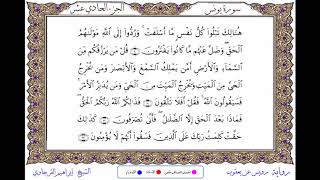 سورة يونس الجزء الحادي عشر
هُنَالِكَ تَبْلُوا۟ كُلُّ نَفْسٍ مَّا أَسْلَفَتْ ۚ وَرُدُّوا۟ إِلَى ٱللَّهِ مَوْلَىٰهُمُ
ٱلْحَقِّ ۖ وَضَلَّ عَنْهُم مَّا كَانُوا۟ يَفْتَرُونَ ٣٠ قُلْ مَن يَرْزُقُكُم مِّنَ
ٱلسَّمَآءِ وَٱلْأَرْضِ أَمَّن يَمْلِكُ ٱلسَّمْعَ وَٱلْأَبْصَٰرَ وَمَن
يُخْرِجُ ٱلْحَىَّ مِنَ ٱلْمَيِّتِ وَيُخْرِجُ ٱلْمَيِّتَ مِنَ ٱلْحَىِّ وَمَن يُدَبِّرُ ٱلْأَمْرَ ۚ
فَسَيَقُولُونَ ٱللَّهُ ۚ فَقُلْ أَفَلَا تَتَّقُونَ ٣١ فَذَٰلِكُمُ ٱللَّهُ رَبُّكُمُ ٱلْحَقُّ ۖ
فَمَاذَا بَعْدَ ٱلْحَقِّ إِلَّا ٱلضَّلَٰلُ ۖ فَأَنَّىٰ تُصْرَفُونَ ٣٢ كَذَٰلِكَ
حَقَّتْ كَلِمَتُ رَبِّكَ عَلَى ٱلَّذِينَ فَسَقُوٓا۟ أَنَّهُمْ لَا يُؤْمِنُونَ ٣٣
رواية رويس عن يعقوب الشيخ إبراهيم الجرجاوي